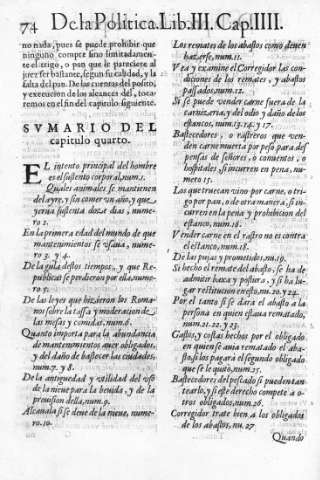 74 De la Politica. Lib. III. Cap. IIII.
no nada, pues se puede prohibir que
ninguno compre sino limitadamen-
te el trigo, o pan que le pareciere al
juez ser bastante, segun su calidad, y la
falta del pan. De las cuentas del posito,
y execucion de los alcances del, toca-
remos en el fin del capitulo siguiente.
SVMARIO DEL
capitulo quarto.
EL intento principal del hombre
es el sustento corporal, num. 1.
Quales animales se mantienen
del ayre, y sin comer vn año, y que
yerua sustenta doze dias, nume-
ro 2.
En la primera edad del mundo de que
mantenimientos se vsaua, nume-
ro. 3. y 4.
De la gula destos tiempos, y que Re-
publicas se perdieron por ella, nume-
ro 5.
De las leyes que hizieron los Roma-
nos sobre la tassa y moderacion de
las mesas y comidas. num. 6.
Quanto importa para la abundancia
de mantenimientos auer obligados,
y del daño de bastecer las ciudades,
num. 7. y 8.
De la antiguedad y vtilidad del vso
de la nieue para la beuida, y de la
prouision della, num. 9.
Alcauala si se deue de la nieue, nume-
ro. 10.
Los remates de los abastos como deuen
hazerse, num. 11.
Vea y examine el Corregidor las con-
diciones de los remates, y abastos
passados, num. 12.
Si se puede vender carne fuera de la
carniceria, y del odio y daño de los
estancos, num. 13. 14. y 17.
Bastecedores, o rastreros que ven-
den carne muerta por peso para des-
pensas de señores, o conuentos, o
hospitales, si incurren en pena, nu-
mero 15.
Los que truecan vino por carne, o tri-
go por pan, o de otra manera, si in-
curren en la pena y prohibicion del
estanco, num. 16.
Vender carne en el rastro no es contra
el estanco, num. 18.
De las pujas y prometidos, nu. 19.
Si hecho el remate del abasto, se ha de
admitir baxa y postura, y si ha lu-
gar restitucion en esto, nu. 20. y 24.
Por el tanto si se dará el abasto a la
persona en quien estaua rematado,
num. 21. 22. y 23.
Gastos, y costas hechos por el obligado
en quien se auia rematado el aba-
sto, si los pagará el segundo obligado
que se le quito, num. 25.
Bastecedores del pescado si pueden tan-
tearlo, y si este derecho compete a o-
tros obligados, num. 26.
Corregidor trate bien a los obligados
de los abastos, nu. 27
Quando